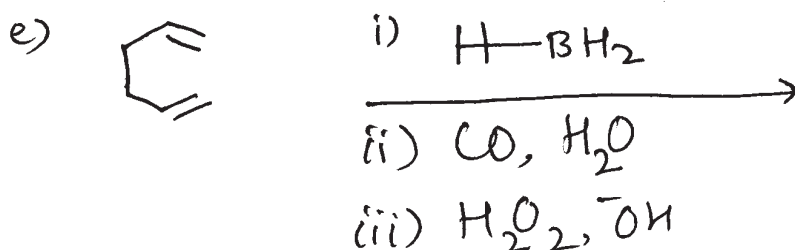 e) i) H—BH₂
ii) CO, H₂O
iii) H₂O₂, ⁻OH